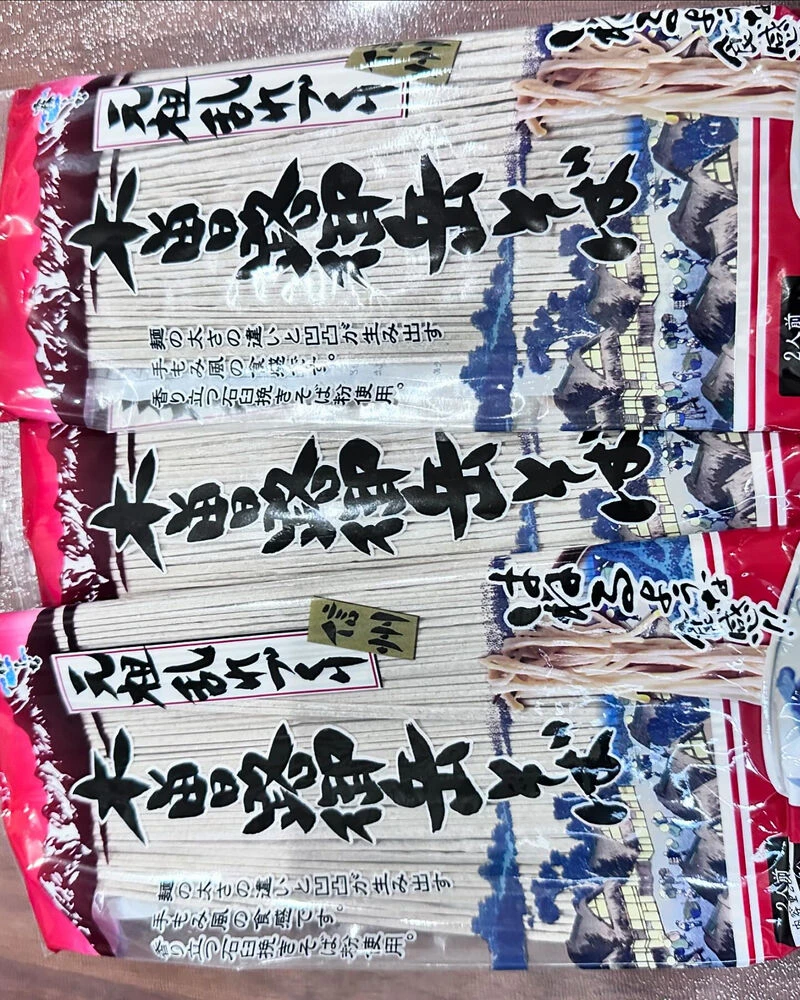 信州
元祖乱れづくり
木曽路御岳そば
麺の太さの違いと凹凸が生み出す
手もみ風の食感です。
香り立つ石臼挽きそば粉使用。
はねるような
食感
2人前
木曽路御岳そば
信州
元祖乱れづくり
木曽路御岳そば
麺の太さの違いと凹凸が生み出す
手もみ風の食感です。
香り立つ石臼挽きそば粉使用。
はねるような
食感!!
2人前